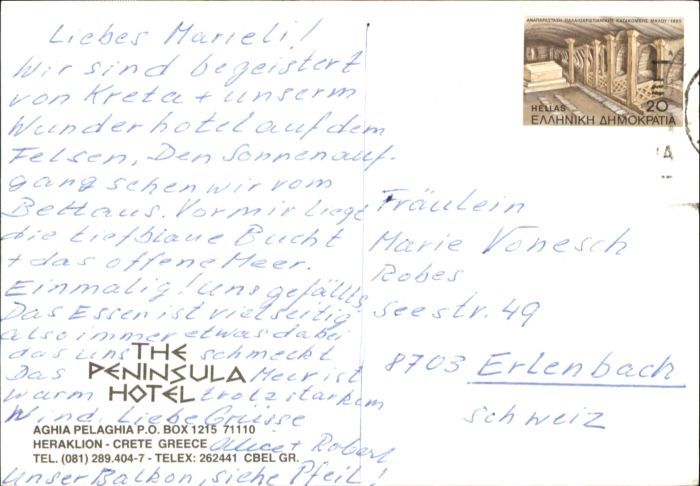 Liebes Marieli!
Wir sind begeistert
von Kreta + unserm
Wunderhotel auf dem
Felsen, Den Sonnenauf-
gang sehen wir vom
Bett aus. Vor mir liegt
die tiefblaue Bucht
+ das offene Meer.
Einmalig! Uns gefällts.
Das Essen ist vielseitig
also immer etwas dabei
das uns schmeckt
Das Meer ist
warm trotz starkem
Wind. Liebe Grüsse
Alice + Robert
Unser Balkon, siehe Pfeil!
THE
PENINSULA
HOTEL
AGHIA PELAGHIA P.O. BOX 1215 71110
HERAKLION - CRETE GREECE
TEL. (081) 289.404-7 - TELEX: 262441 CBEL GR.
ΑΝΑΠΑΡΑΣΤΑΣΗ ΠΑΛΑΙΟΧΡΙΣΤΙΑΝΙΚΗΣ ΚΑΤΑΚΟΜΒΗΣ ΜΗΛΟΥ - 1985
HELLAS 20
ΕΛΛΗΝΙΚΗ ΔΗΜΟΚΡΑΤΙΑ
Fräulein
Marie Vonesch
Robes
Seestr. 49
8703 Erlenbach
Schweiz